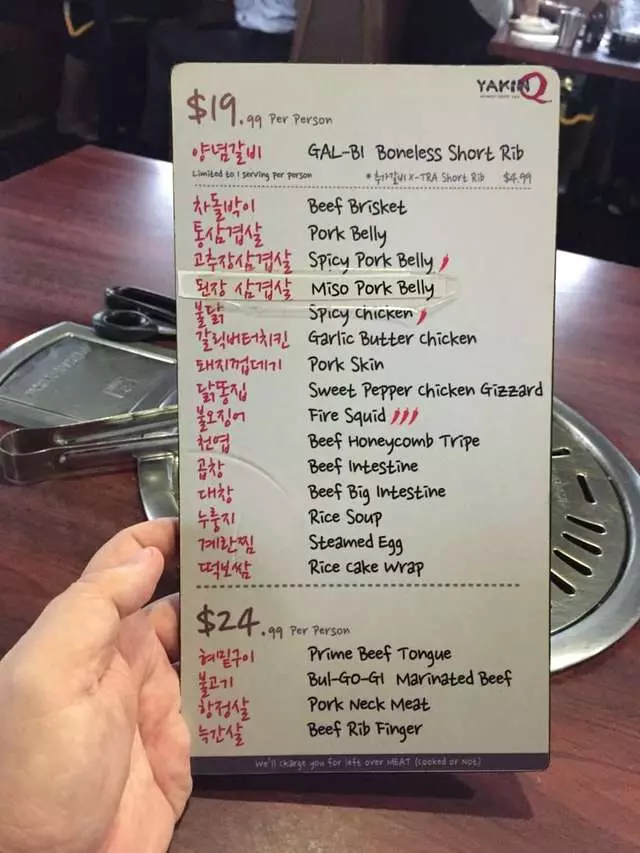 YAKINIQ
$19.99 Per Person
양념갈비 GAL-BI Boneless Short Rib
Limited to 1 serving per person * 추가갈비 X-TRA Short Rib $4.99
차돌박이 Beef Brisket
통삼겹살 Pork Belly
고추장삼겹살 Spicy Pork Belly
된장 삼겹살 Miso Pork Belly
불닭 Spicy Chicken
갈릭버터치킨 Garlic Butter Chicken
돼지껍데기 Pork Skin
닭똥집 Sweet Pepper Chicken Gizzard
불오징어 Fire Squid
천엽 Beef Honeycomb Tripe
곱창 Beef Intestine
대창 Beef Big Intestine
누룽지 Rice Soup
계란찜 Steamed Egg
떡보쌈 Rice Cake Wrap
$24.99 Per Person
혀밑구이 Prime Beef Tongue
불고기 Bul-GO-GI Marinated Beef
항정살 Pork Neck Meat
늑간살 Beef Rib Finger
We'll charge you for left over MEAT (Cooked or Not)